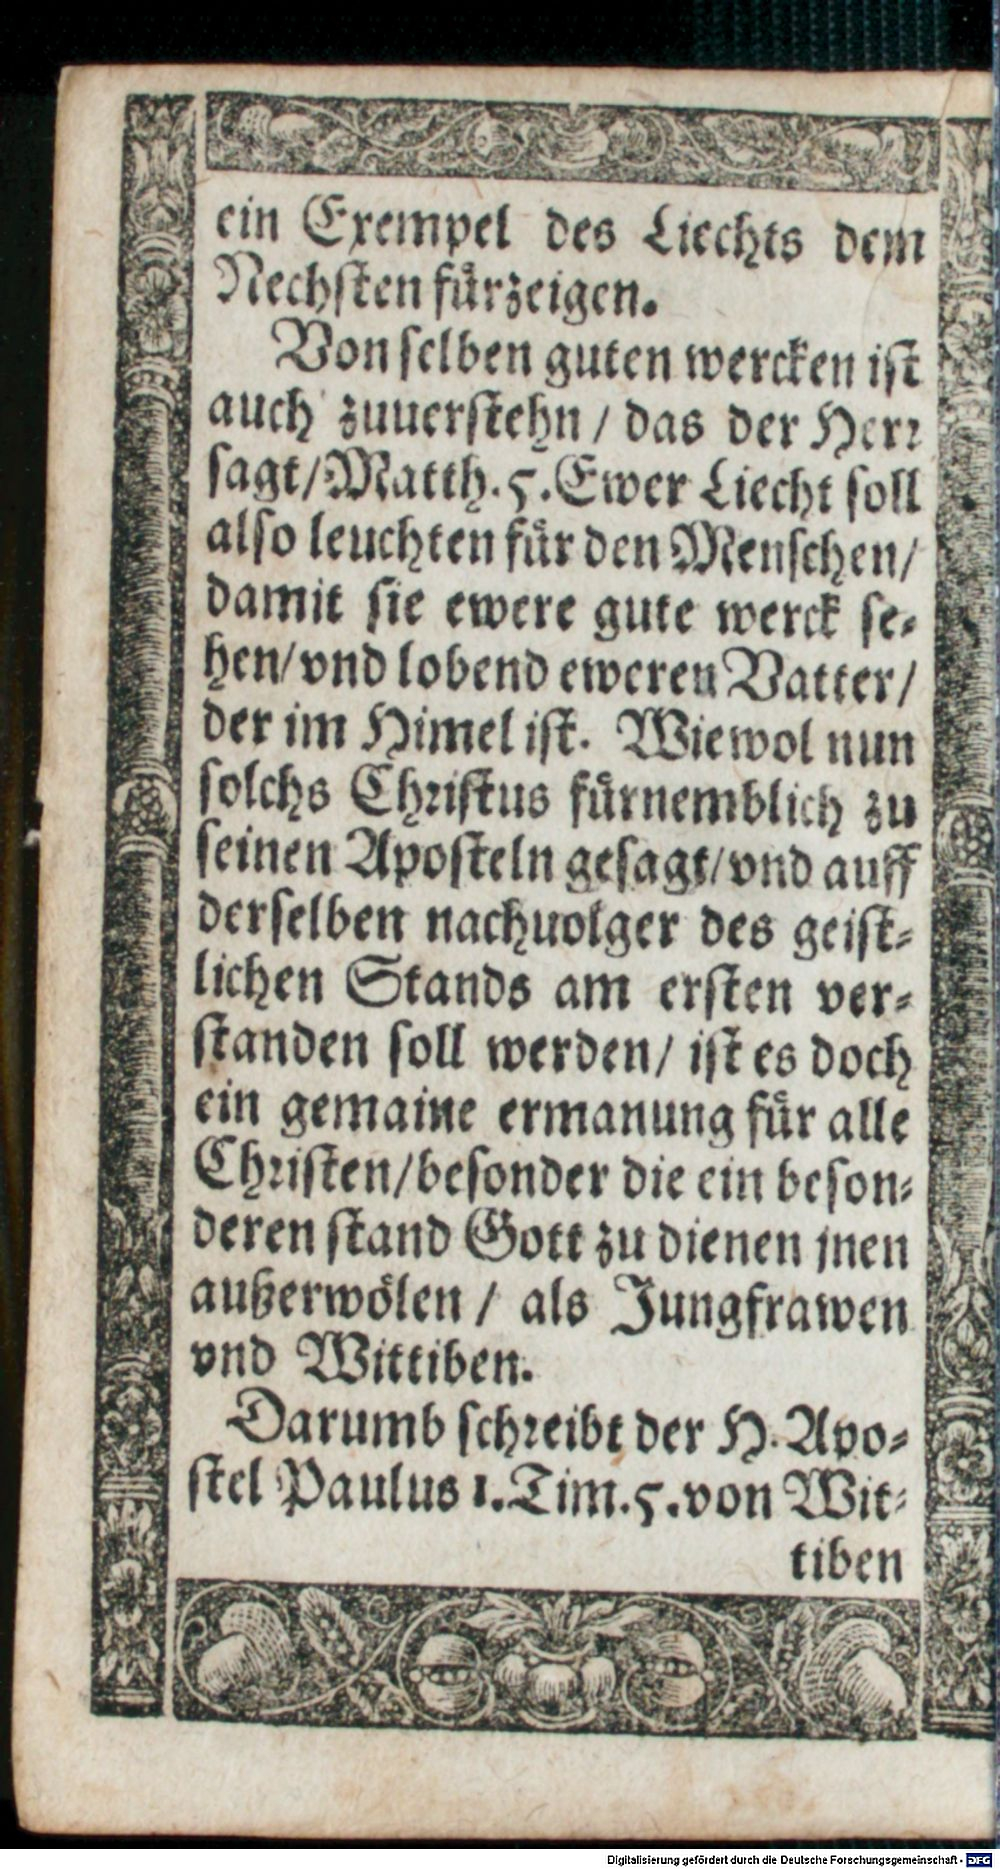 ein Exempel des Liechts dem
Nechsten fürzeigen.
Von selben guten wercken ist
auch zuuerstehn / das der Herr
sagt / Matth. 5. Ewer Liecht soll
also leuchten für den Menschen /
damit sie ewere gute werck se-
hen / vnd lobend eweren Vatter /
der im Himel ist. Wiewol nun
solchs Christus fürnemblich zu
seinen Aposteln gesagt / vnd auff
derselben nachuolger des geist-
lichen Stands am ersten ver-
standen soll werden / ist es doch
ein gemaine ermanung für alle
Christen / besonder die ein beson-
deren stand Gott zu dienen jnen
außerwölen / als Jungfrawen
vnd Wittiben.
Darumb schreibt der H. Apo-
stel Paulus 1. Tim. 5. von Wit-
tiben
Digitalisierung gefördert durch die Deutsche Forschungsgemeinschaft - DFG